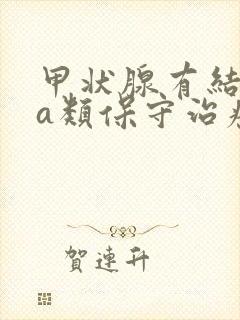 甲状腺有結
a類保守治
賀連升